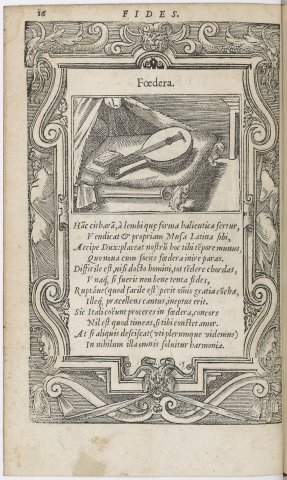 16 FIDES.
Fœdera.
Hãc citharã, à lembi quæ forma halieutica fertur,
Vendicat & propriam Musa Latina sibi,
Accipe Dux: placeat nostrũ hoc tibi tẽpore munus,
Quo noua cum socijs fœdera inire paras.
Difficile est, nisi docto homini, tot tẽdere chordas,
Vnaq́; si fuerit non bene tenta fides,
Ruptáue (quod facile est) perit oĩs gratia cõchæ,
Illeq́; præcellens cantus, ineptus erit.
Sic Itali coëunt proceres in fœdera, concors
Nil est quod timeas, si tibi constet amor.
At si aliquis desciscat (vti plerunque videmus)
In nihilum illa omnis soluitur harmonia.